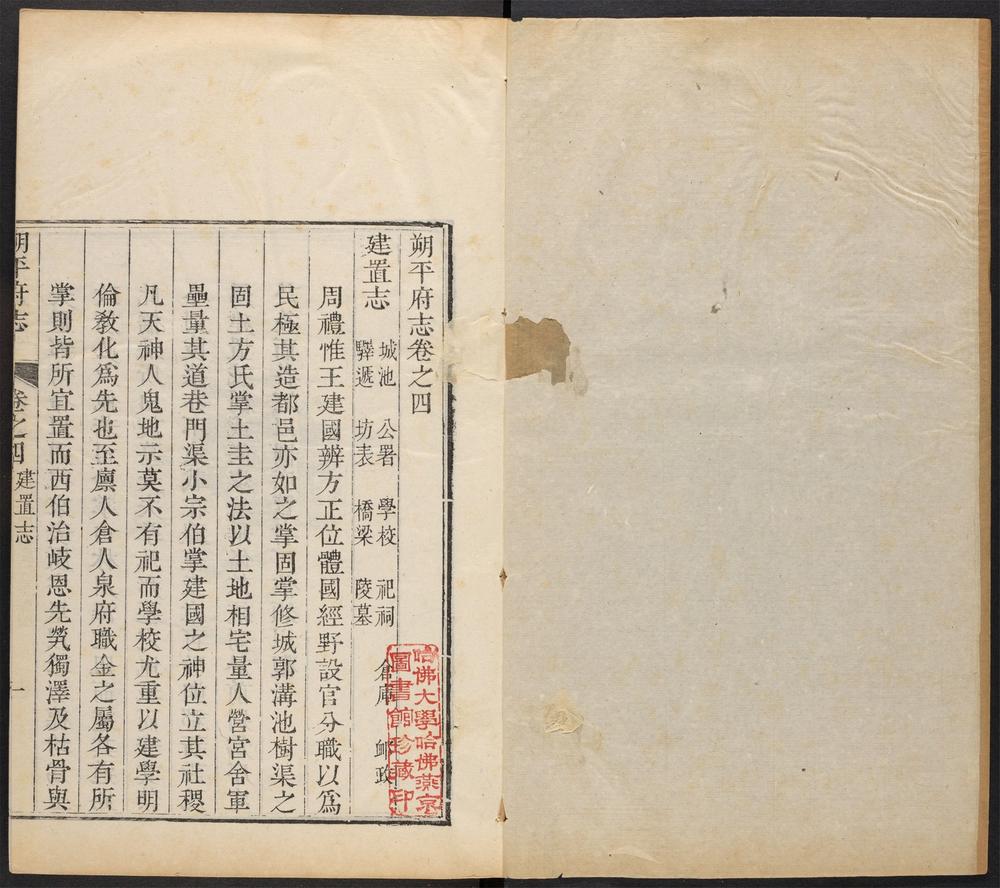 朔平府志卷之四
建置志
城池 公署 學校 祀祠 倉庫 郵政
驛遞 坊表 橋梁 陵墓
周禮惟王建國辨方正位體國經野設官分職以爲
民極其造都邑亦如之掌固掌修城郭溝池樹渠之
固土方氏掌土圭之法以土地相宅量人營宮舍軍
壘量其道巷門渠小宗伯掌建國之神位立其社稷
凡天神人鬼地示莫不有祀而學校尤重以建學明
倫敎化爲先也至廩人倉人泉府職金之屬各有所
掌則皆所宜置而西伯治岐恩先煢獨澤及枯骨與
朔平府志
卷之四
建置志
一
哈佛大學哈佛燕京
圖書館珍藏印